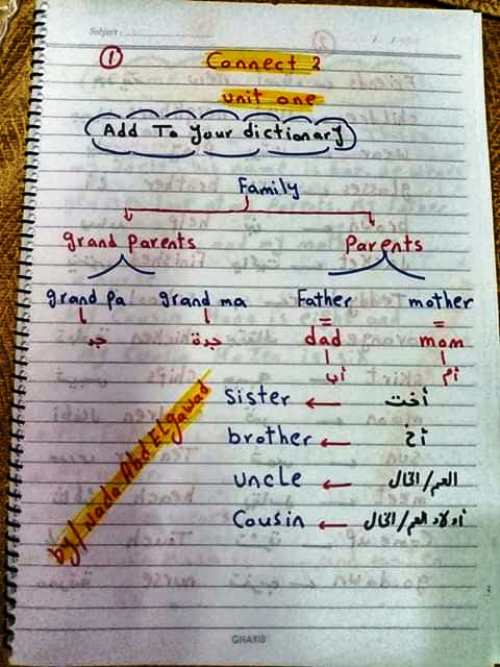 Subject:
①
Connect 2
unit one
Add To Your dictionary
Family
grand Parents Parents
grand pa grand ma Father mother
= =
جد جدة dad mom
أب أم
sister ← أخت
brother ← أخ
uncle ← العم/الخال
Cousin ← أولاد العم/الخال
by/ Nada Abd Elgawad
GHAYIB